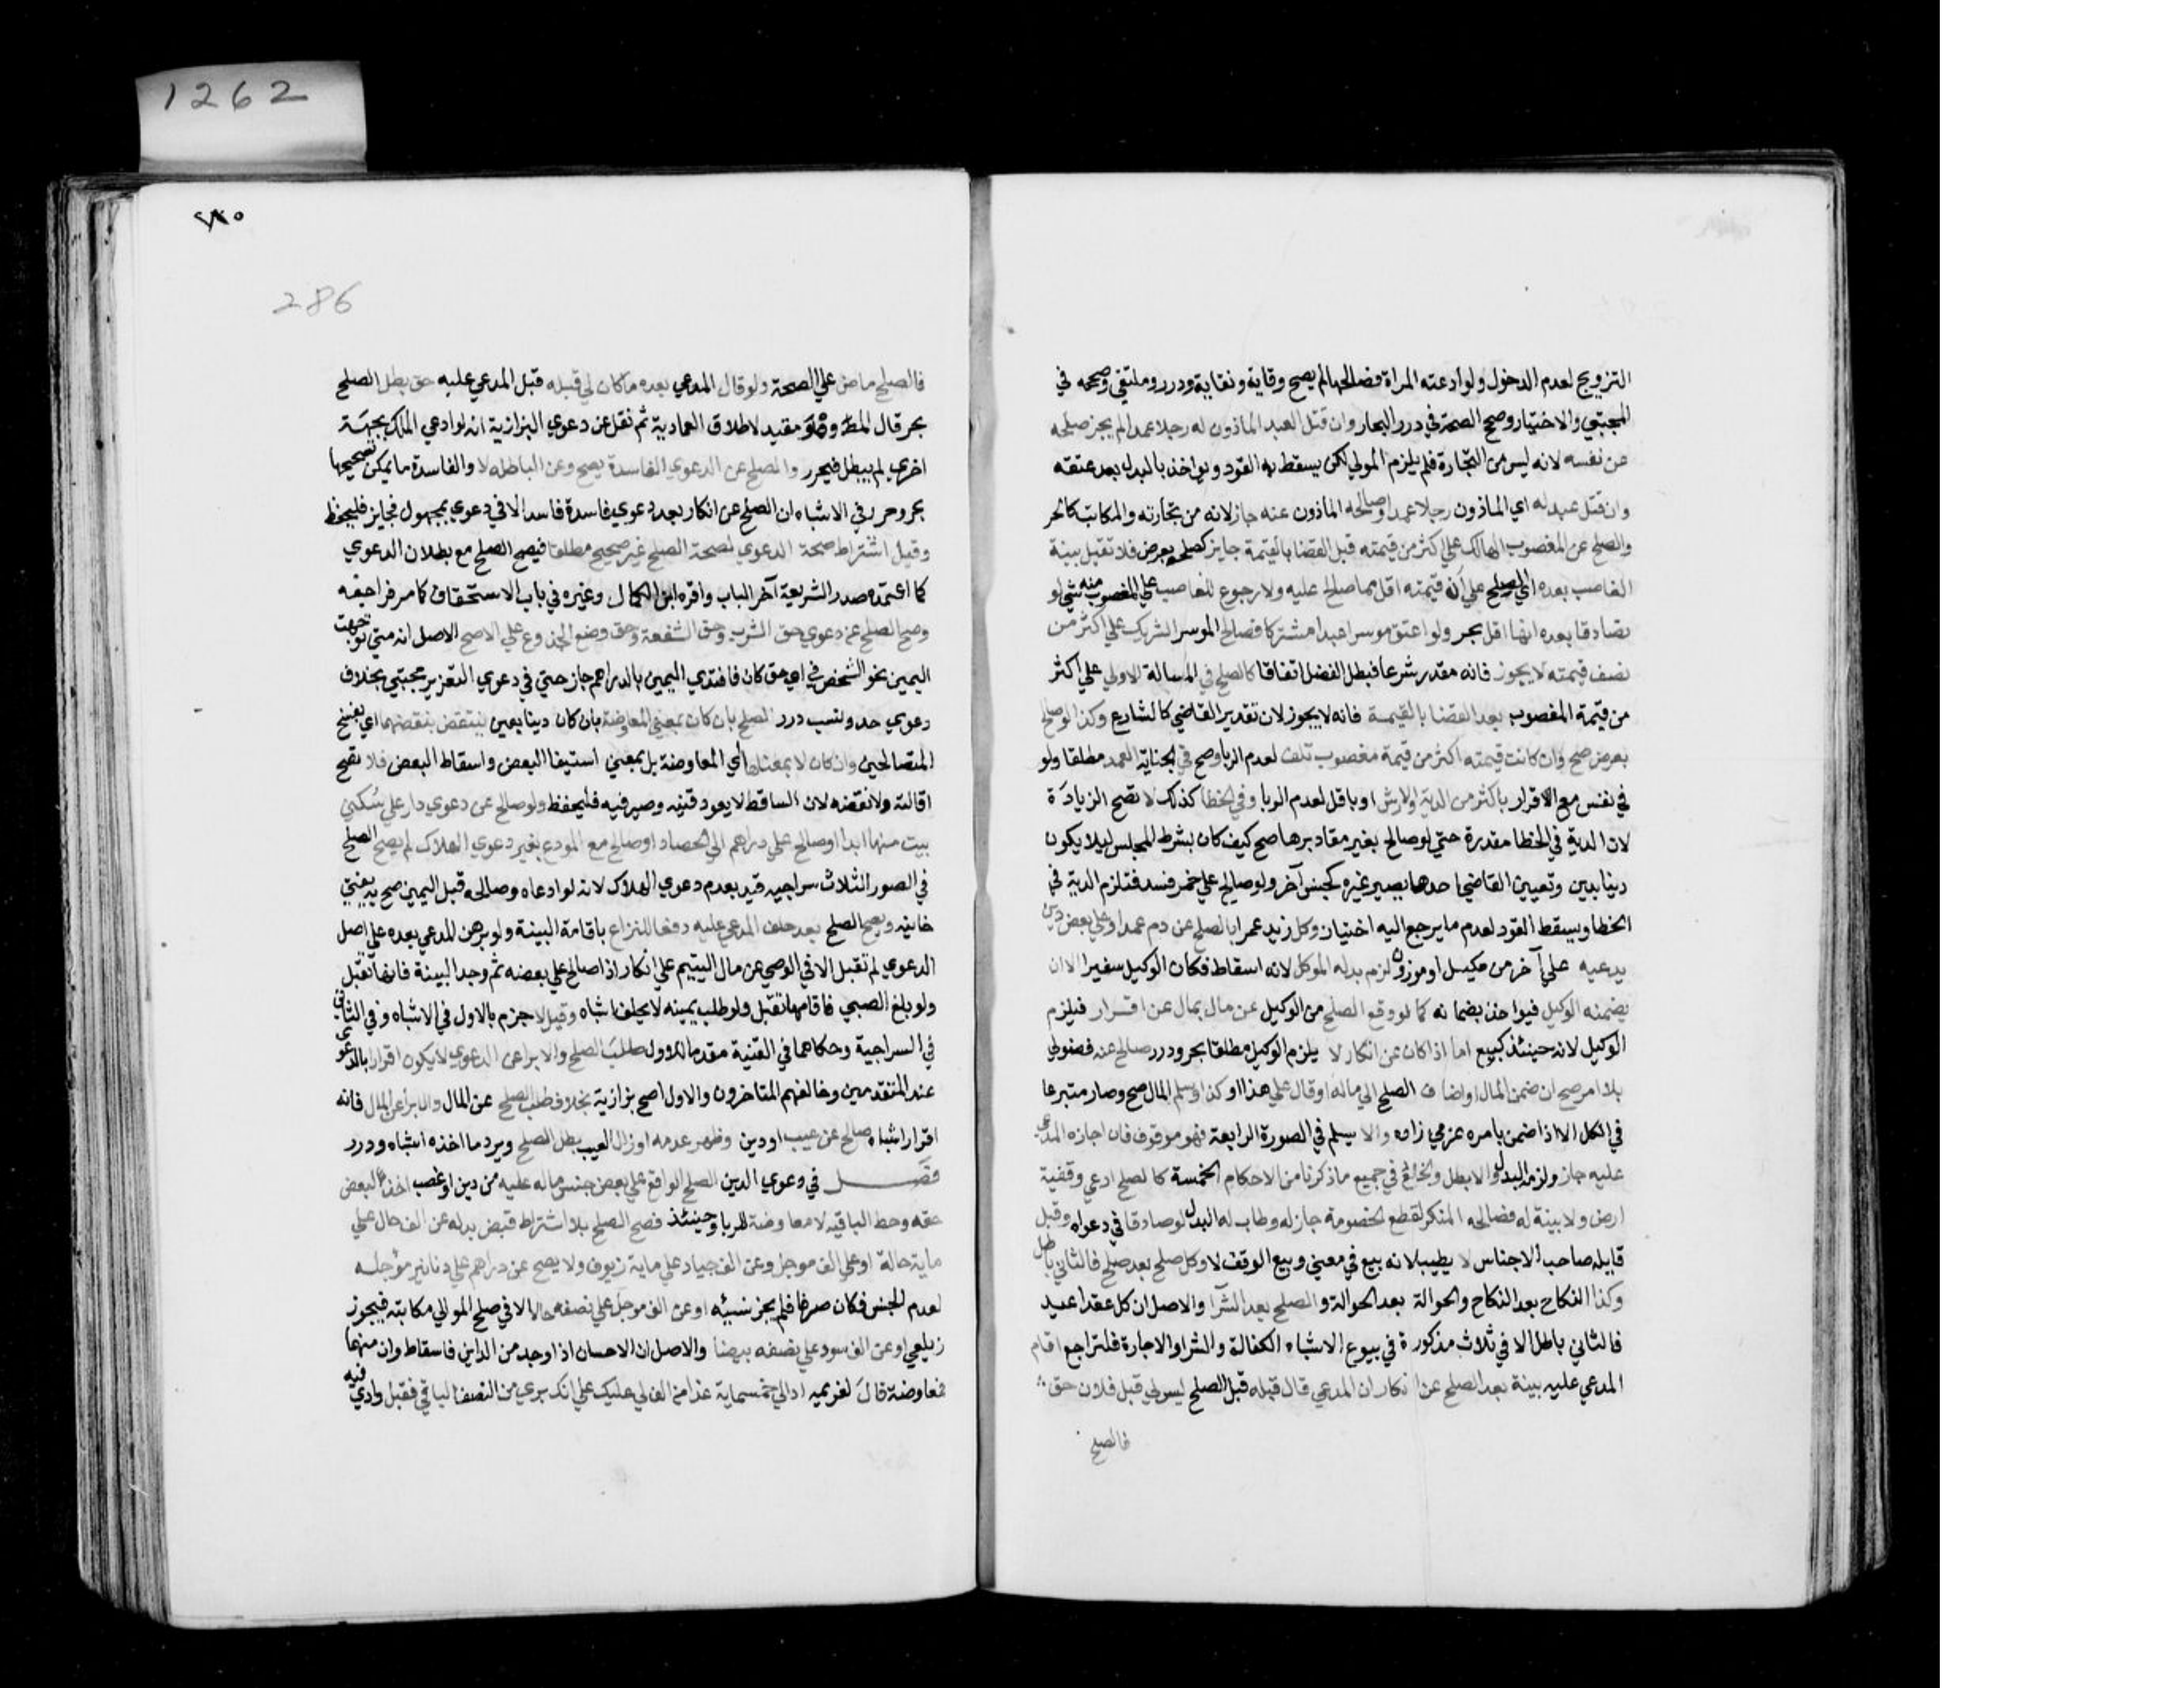 التزويج لعدم الدخول ولو ادعته المراة فصالحها لم يصح وقاية ونقاية ودرر وملتقي وصححه في
المجتبي والاختيار وصحح الصحة في درر البحار وان قتل العبد الماذون له رجلا عمدا لم يجز صلحه
عن نفسه لانه ليس من التجارة فلم يلزم المولي لكن يسقط به القود ويواخذ بالبدل بعد عتقه
وان قتل عبد له اي الماذون رجلا عمدا وصالحه الماذون عنه جاز لانه من تجارته والمكاتب كالحر
والصلح عن المغصوب الهالك علي اكثر من قيمته قبل القضا بالقيمة جايز كصلحه بعرض فلا تقبل بينة
الغاصب بعده اي الصلح علي ان قيمته اقل مما صالح عليه ولا رجوع للغاصب علي المغصوب منه بشي لو
تصادقا بعده انها اقل بحر ولو اعتق موسر عبدا مشتركا فصالح الموسر الشريك علي اكثر من
نصف قيمته لا يجوز فانه مقدر شرعا فبطل الفضل اتفاقا كالصلح في المسالة الاولي علي اكثر
من قيمة المغصوب بعد القضا بالقيمة فانه لا يجوز لان تقدير القاضي كالشارع وكذا لو صالح
بعرض صح وان كانت قيمته اكثر من قيمة مغصوب تلف لعدم الربا وصح في الجناية العمد مطلقا ولو
في نفس مع الاقرار باكثر من الدية والارش او باقل لعدم الربا وفي الخطا كذلك لا تصح الزيادة
لان الدية في الخطا مقدرة حتي لو صالح بغير مقاديرها صح كيف كان بشرط المجلس ليلا يكون
دينا بدين وتعيين القاضي احدها يصير غيره كجنس آخر ولو صالح علي خمر فسد فتلزم الدية في
الخطا ويسقط القود لعدم ما يرجع اليه اختيار وكل زيد عمرا بالصلح عن دم عمد او علي بعض دين
يدعيه علي آخر من مكيل او موزون لزم بدله الموكل لانه اسقاط فكان الوكيل سفيرا الا ان
يضمنه الوكيل فيواخذ بضمانه كما لو وقع الصلح من الوكيل عن مال بمال عن اقرار فيلزم
الوكيل لانه حينئذ كبيع اما اذا كان عن انكار لا يلزم الوكيل مطلقا بحر ودرر صالح عنه فضولي
بلا امر صح ان ضمن المال او اضاف الصلح الي ماله او قال علي هذا او كذا وسلم المال صح وصار متبرعا
في الكل الا اذا ضمن بامره عزمي زاده والا يسلم في الصورة الرابعة فهو موقوف فان اجازه المدعي
عليه جاز ولزمه البدل والا بطل والخالع في جميع ما ذكرنا من الاحكام الخمسة كالصلح ادعي وقفية
ارض ولا بينة له فصالحه المنكر لقطع الخصومة جاز له وطاب له البدل لو صادقا في دعواه وقيل
قايله صاحب الاجناس لا يطيب لانه بيع في معني وبيع الوقف لا وكل صلح بعد صلح فالثاني باطل
وكذا النكاح بعد النكاح والحوالة بعد الحوالة والصلح بعد الشرا والاصل ان كل عقد اعيد
فالثاني باطل الا في ثلاث مذكورة في بيوع الاشباه الكفالة والشرا والاجارة فلتراجع اقام
المدعي عليه بينة بعد الصلح عن انكار ان المدعي قال قبله قبل الصلح ليس لي قبل فلان حق
فالصلح
1262
286
فالصلح ماض علي الصحة ولو قال المدعي بعده ما كان لي قبله قبل المدعي عليه حق بطل الصلح
بحر قال المط وهو مقيد لاطلاق العمادية ثم نقل عن دعوي البزازية انه لو ادعي الملك بجهة
اخري لم يبطل فيحرر والصلح عن الدعوي الفاسدة يصح وعن الباطله لا والفاسدة ما يمكن تصحيحها
بحر وحرر في الاشباه ان الصلح عن انكار بعد دعوي فاسدة فاسد الا في دعوي بمجهول فجايز فليحفظ
وقيل اشتراط صحة الدعوي لصحة الصلح غير صحيح مطلقا فيصح الصلح مع بطلان الدعوي
كما اعتمده صدر الشريعة آخر الباب واقره ابن الكمال وغيره في باب الاستحقاق كما مر فراجعه
وصح الصلح عن دعوي حق الشرب وحق الشفعة وحق وضع الجذوع علي الاصح الاصل انه متي توجهت
اليمين نحو الشخص في اي حق كان فافتدي اليمين بالدراهم جاز حتي في دعوي التعزير مجتبي بخلاف
دعوي حد ونسب درر الصلح بان كان بمعني المعاوضة بان كان دينا بعين ينتقض بنقضهما اي بفسخ
المتصالحين وان كان لا بمعناها اي المعاوضة بل بمعني استيفا البعض واسقاط البعض فلا تصح
اقالته ولا نقضه لان الساقط لا يعود قنيه وصيرفيه فليحفظ ولو صالح عن دعوي دار علي سكني
بيت منها ابدا او صالح علي دراهم الي الحصاد او صالح مع المودع بغير دعوي الهلاك لم يصح الصلح
في الصور الثلاث سراجيه قيد بعدم دعوي الهلاك لانه لو ادعاه وصالحه قبل اليمين صح به يفتي
خانيه ويصح الصلح بعد حلف المدعي عليه دفعا للنزاع باقامة البينة ولو برهن المدعي بعده علي اصل
الدعوي لم تقبل الا في الوصي عن مال اليتيم علي انكار اذا صالح علي بعضه ثم وجد البينة فانها تقبل
ولو بلغ الصبي فاقامها تقبل ولو طلب يمينه لا يحلف اشباه وقيل لا جزم بالاول في الاشباه وفي الثاني
في السراجية وحكاهما في القنية مقدما للاول طلب الصلح والابرا عن الدعوي لا يكون اقرارا بالدعوي
عند المتقدمين وخالفهم المتاخرون والاول اصح بزازية بخلاف طلب الصلح عن المال والابرا عن المال فانه
اقرار اشباه صالح عن عيب او دين وظهر عدمه او زال العيب بطل الصلح ويرد ما اخذه اشباه ودرر
فصل في دعوي الدين الصلح الواقع علي بعض جنس ماله عليه من دين او غصب اخذ لبعض
حقه وحط لباقيه لا معاوضة للربا وحينئذ فصح الصلح بلا اشتراط قبض بدله عن الف حال علي
ماية حالة او علي الف موجل وعن الف جياد علي ماية زيوف ولا يصح عن دراهم علي دنانير مؤجله
لعدم الجنس فكان صرفا فلم يجز نسيئه او عن الف موجل علي نصفه حالا الا في صلح المولي مكاتبه فيجوز
زيلعي او عن الف سود علي نصفه بيضا والاصل ان الاحسان اذا وجد من الداين فاسقاط وان منهما
فمعاوضة قال لغريمه اد الي خمسماية غدا من الف لي عليك علي انك بري من النصف الباقي فقبل وادي فيه